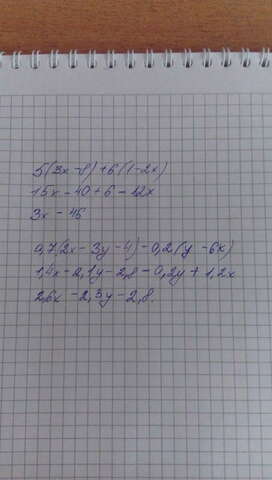 5(3x-8)+6(1-2x)
15x-40+6-12x
3x-46
0,7(2x-3y-4)-0,2(y-6x)
1,4x-2,1y-2,8-0,2y+1,2x
2,6x-2,3y-2,8.